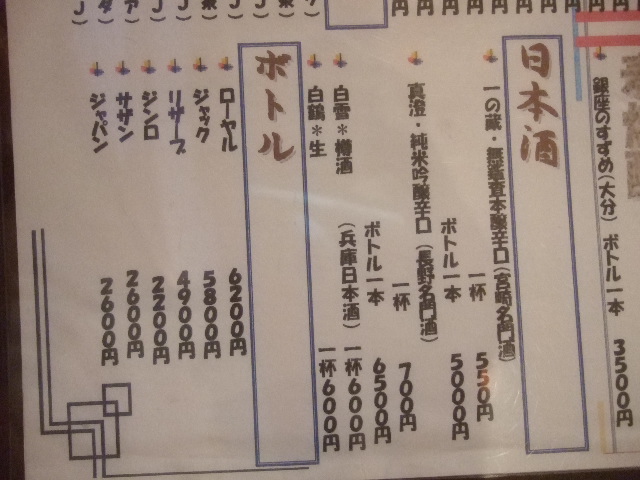 銀座のすすめ(大分) ボトル一本 3500円
日本酒
一の蔵・無鑑査本醸辛口(宮崎名門酒)
一杯 550円
ボトル一本 5000円
真澄・純米吟醸辛口(長野名門酒)
一杯 700円
ボトル一本 6500円
白雪*樽酒 (兵庫日本酒) 一杯600円
白鶴*生 一杯600円
ボトル
ローヤル 6200円
ジャック 5800円
リザーブ 4900円
ジンロ 2200円
サザン 2600円
ジャパン 2600円